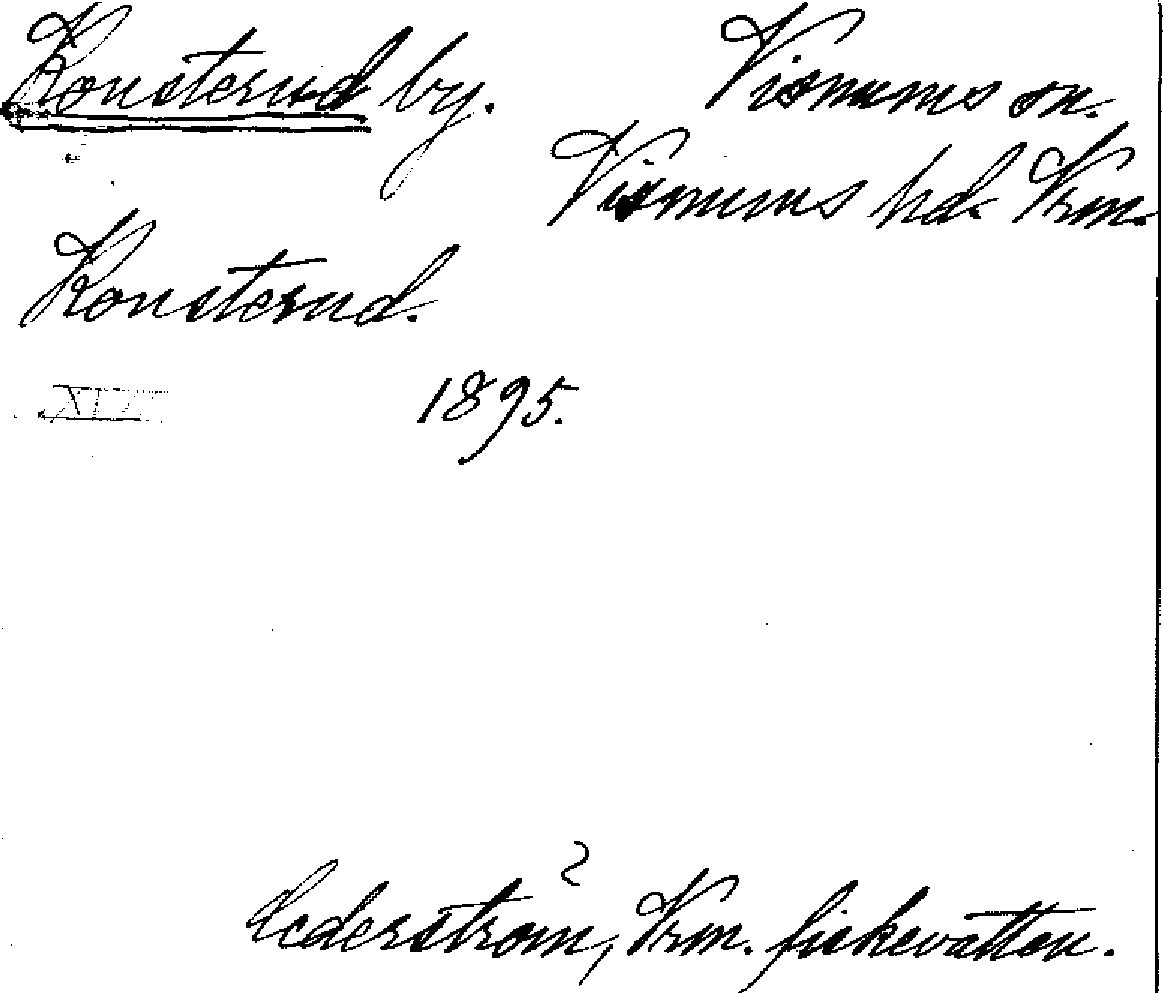 Konsterud by. Visnums sn.
Visnums hd. Vrm.
Konsterud.
XII 1895.
Cederström, Vrm. fiskevatten.